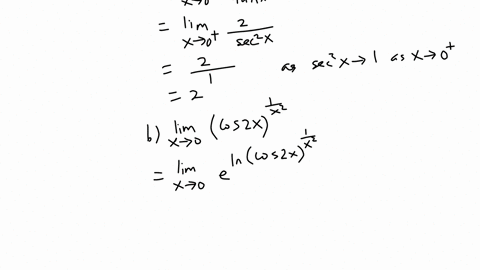 x→0
= lim x→0⁺ 2/sec²x
= 2/1 as sec²x → 1 as x→0⁺
= 2
b) lim x→0 (cos2x)^(1/x²)
= lim x→0 e^(ln(cos2x)^(1/x²))